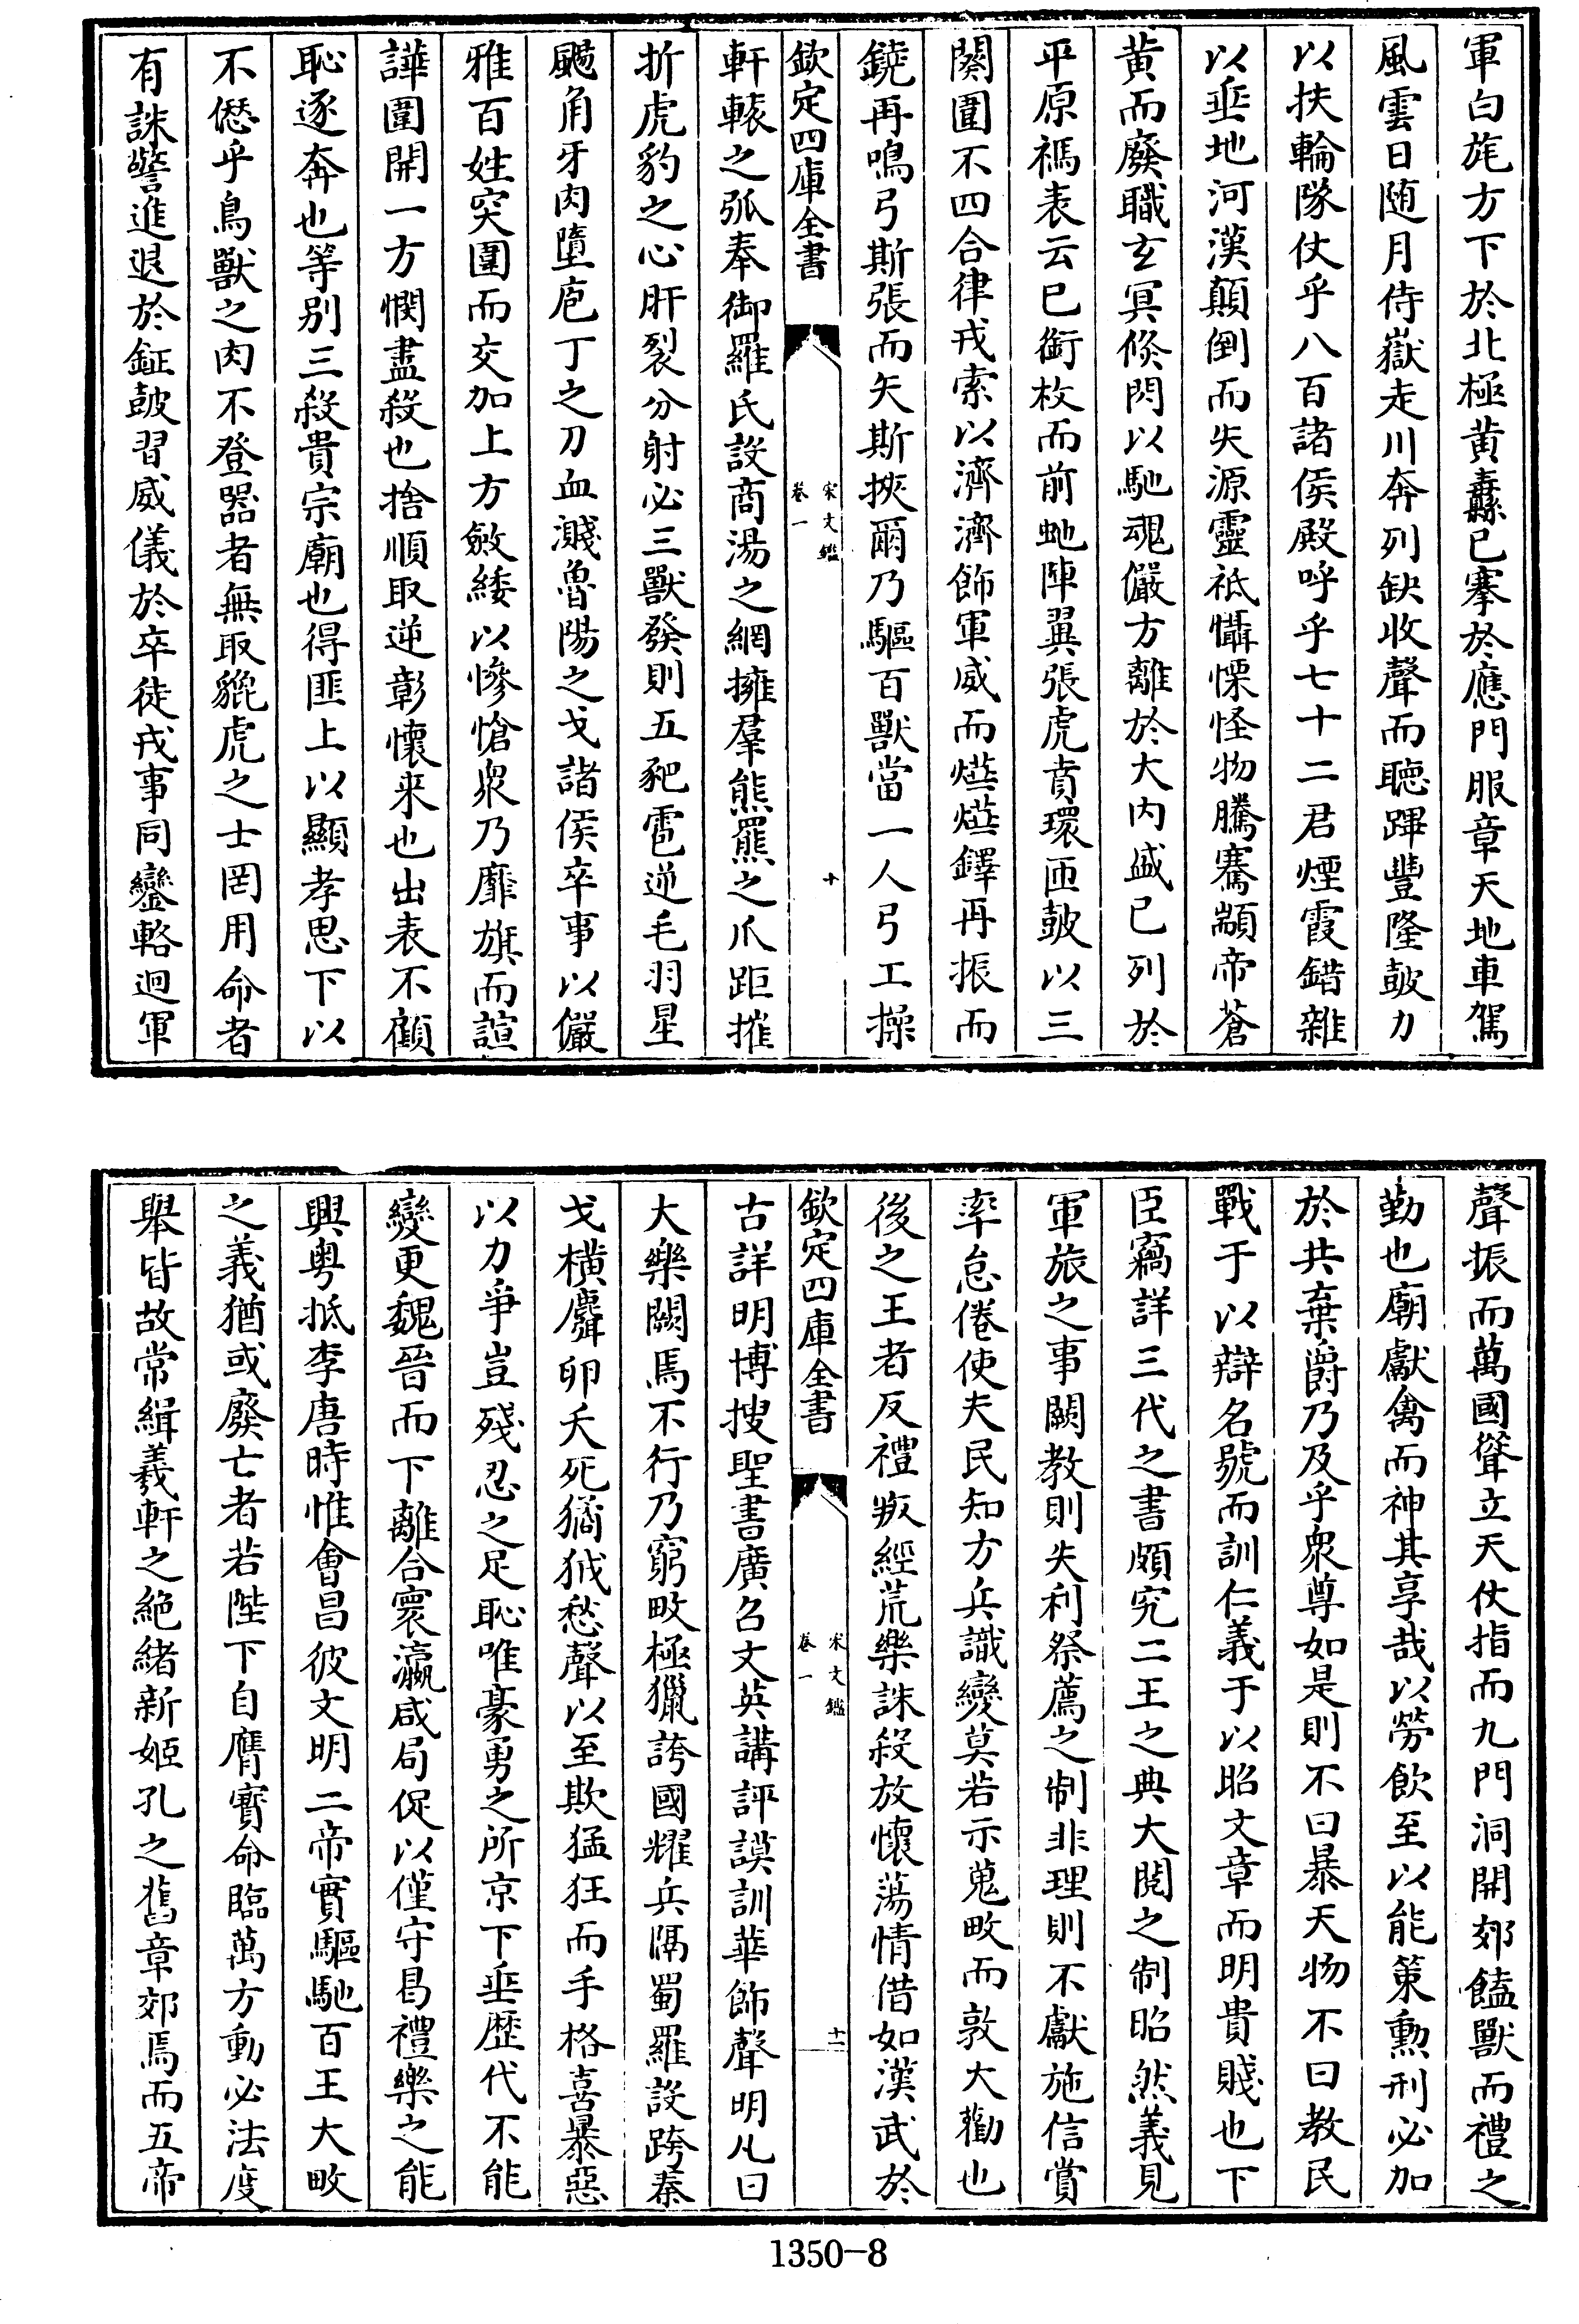 軍白旄方下於北極黄纛已搴於應門服章天地車駕
風雲日随月侍嶽走川奔列缺收聲而聽蹕豐隆鼓力
以扶輪隊仗乎八百諸侯殿呼乎七十二君煙霞錯雜
以垂地河漢顛倒而失源靈祇懾慄怪物騰騫顓帝蒼
黄而廢職玄冥倏閃以馳魂儼方離於大内盛已列於
平原禡表云已銜枚而前虵陣翼張虎賁環匝鼓以三
闋圍不四合律戎索以濟濟飾軍威而爗爗鐸再振而
鐃再鳴弓斯張而矢斯挾爾乃驅百獸當一人弓工操
欽定四庫全書
宋文鑑
卷一
十
軒轅之弧奉御羅氏設商湯之網擁羣熊羆之爪距摧
折虎豹之心肝裂分射必三獸發則五豝雹逆毛羽星
颺角牙肉墮庖丁之刀血濺魯陽之戈諸侯卒事以儼
雅百姓突圍而交加上方斂綏以慘愴衆乃靡旗而諠
譁圍開一方憫盡殺也捨順取逆彰懷来也出表不顧
恥逐奔也等别三殺貴宗廟也得匪上以顯孝思下以
不僽乎鳥獸之肉不登器者無取貔虎之士罔用命者
有誅警進退於鉦鼓習威儀於卒徒戎事同鑾輅迴軍
聲振而萬國聳立天仗指而九門洞開郊饁獸而禮之
勤也廟獻禽而神其享哉以勞飲至以能策勲刑必加
於共棄爵乃及乎衆尊如是則不曰暴天物不曰教民
戰于以辯名號而訓仁義于以昭文章而明貴賤也下
臣竊詳三代之書頗究二王之典大閱之制昭然義見
軍旅之事闕教則失利祭薦之制非理則不獻施信賞
率怠倦使夫民知方兵識變莫若示蒐畋而敦大勸也
後之王者反禮叛經荒樂誅殺放懷蕩情借如漢武於
欽定四庫全書
宋文鑑
卷一
十一
古詳明博捜聖書廣召文英講評謨訓華飾聲明凡曰
大樂闕焉不行乃窮畋極獵誇國耀兵隔蜀羅設跨秦
戈橫麛卵夭死獝狘愁聲以至欺猛狂而手格喜暴惡
以力爭豈殘忍之足恥唯豪勇之所京下垂歴代不能
變更魏晉而下離合寰瀛咸局促以僅守曷禮樂之能
興粤抵李唐時惟會昌彼文明二帝實驅馳百王大畋
之義猶或廢亡者若陛下自膺寳命臨萬方動必法度
舉皆故常緝羲軒之絶緒新姬孔之舊章郊焉而五帝
1350-8